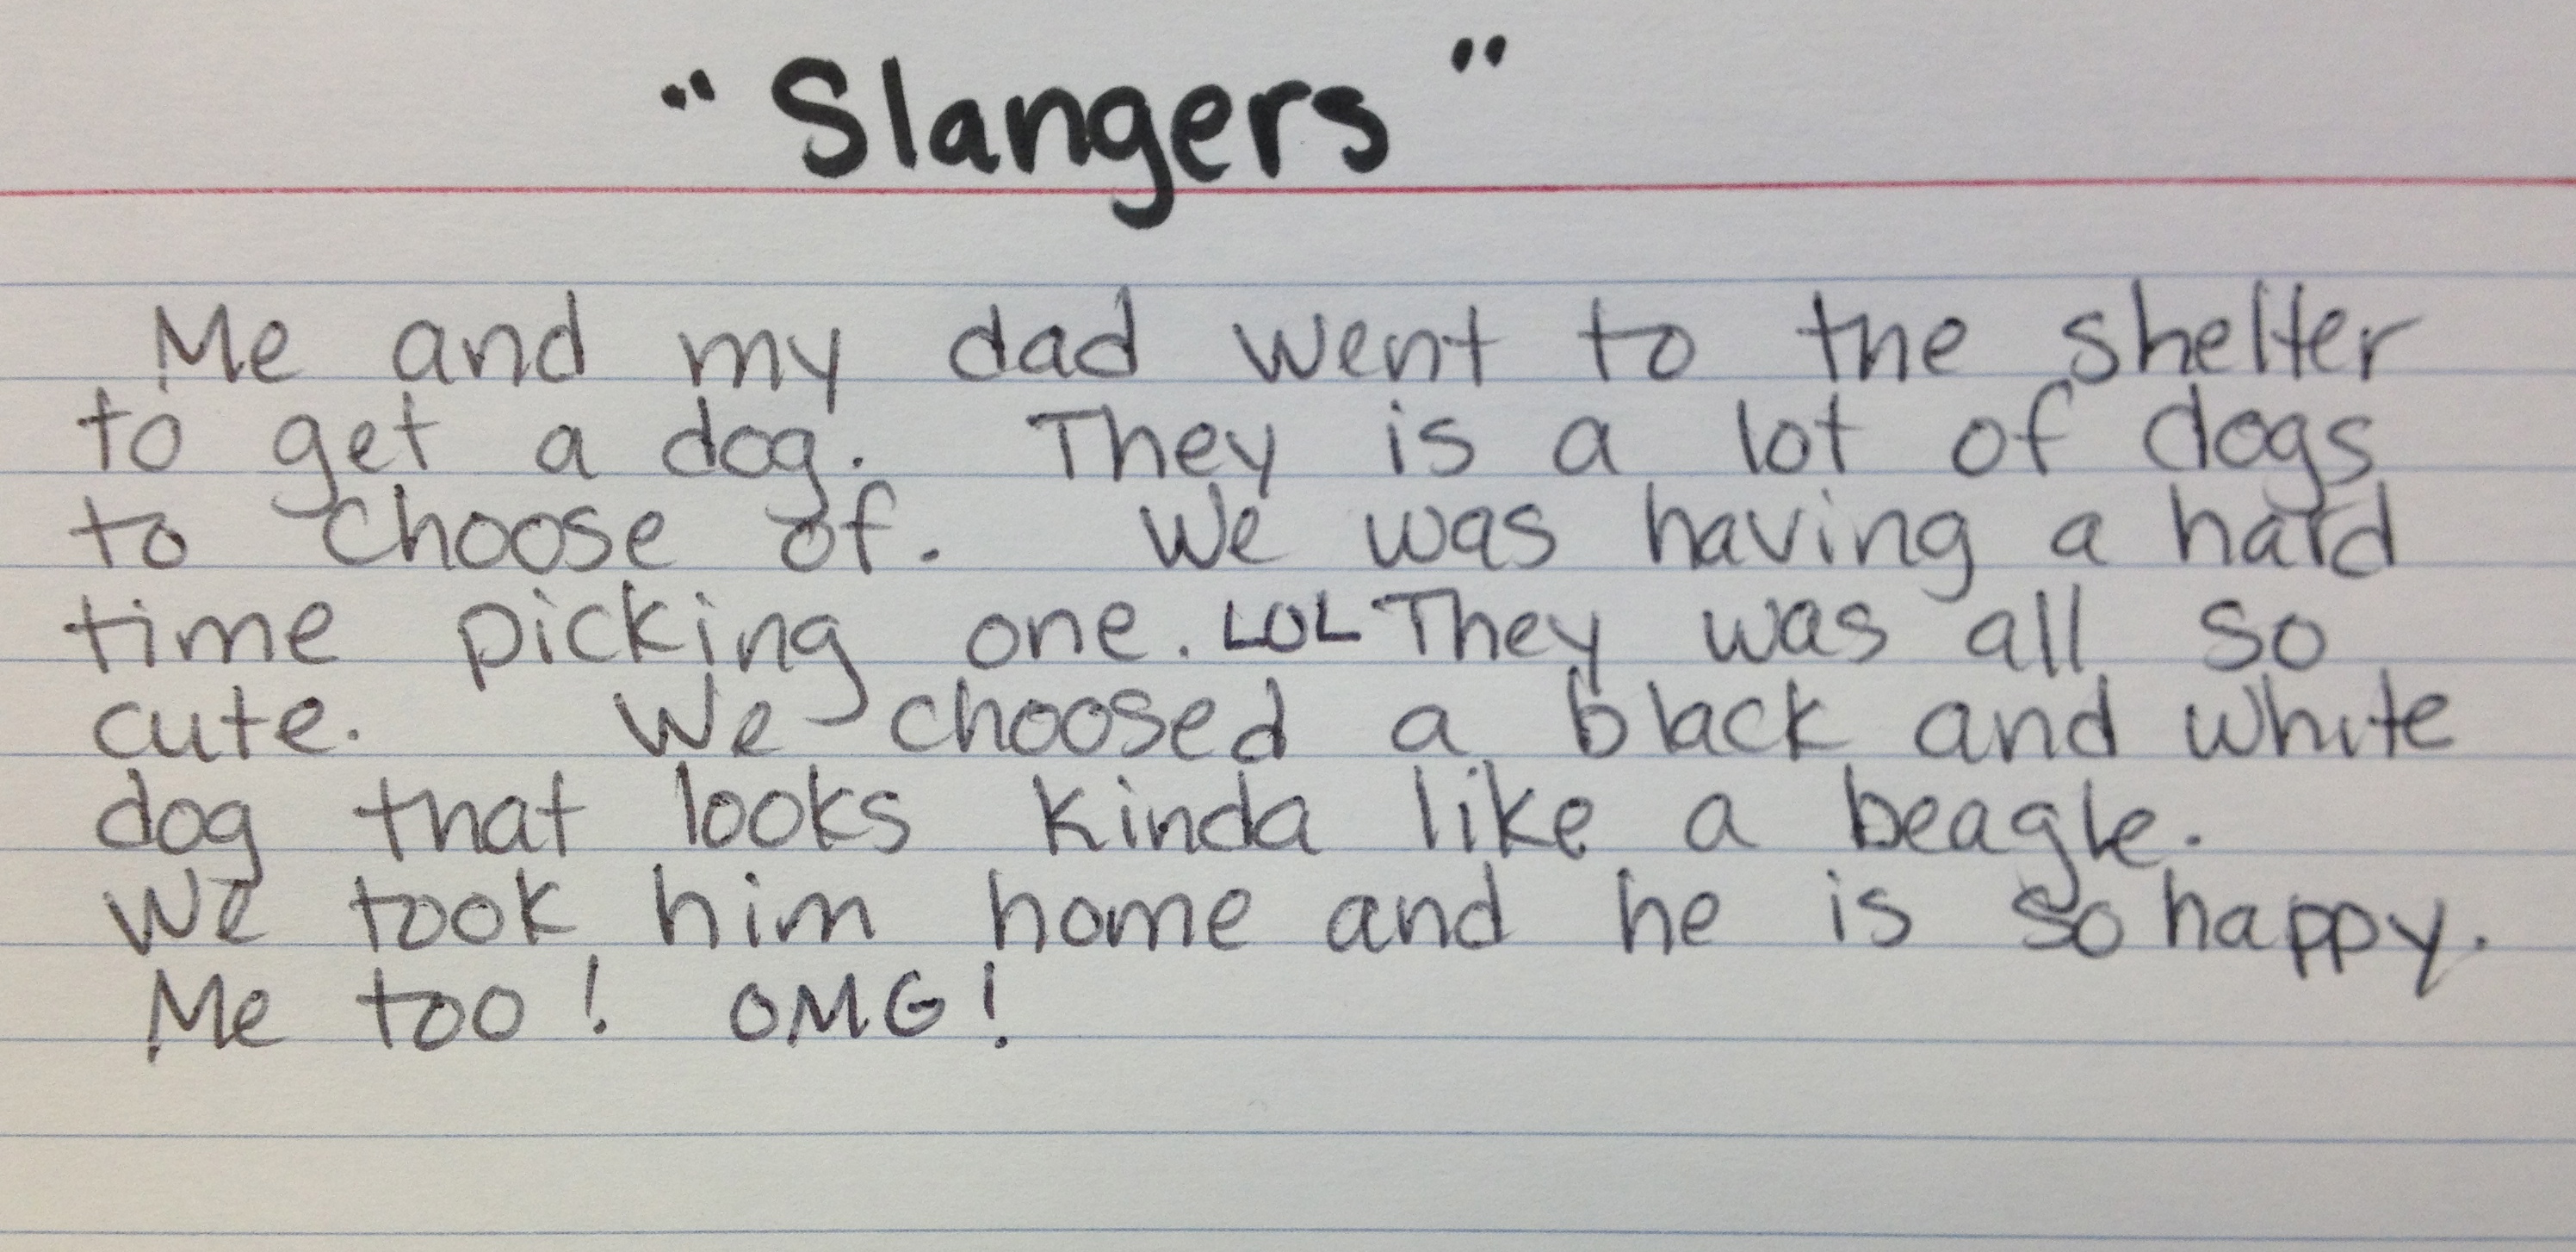 "Slangers"
Me and my dad went to the shelter
to get a dog. They is a lot of dogs
to choose of. We was having a hard
time picking one. LOL They was all so
cute. We choosed a black and white
dog that looks kinda like a beagle.
We took him home and he is so happy.
Me too! OMG!